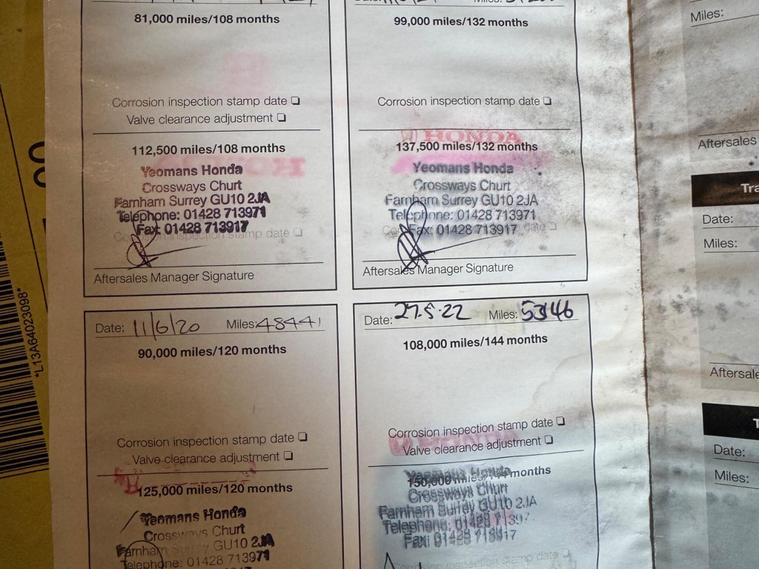 81,000 miles/108 months
Corrosion inspection stamp date
Valve clearance adjustment
112,500 miles/108 months
Yeomans Honda
Crossways Churt
Farnham Surrey GU10 2JA
Telephone: 01428 713971
Fax: 01428 713917
Aftersales Manager Signature
99,000 miles/132 months
Corrosion inspection stamp date
HONDA
137,500 miles/132 months
Yeomans Honda
Crossways Churt
Farnham Surrey GU10 2JA
Telephone: 01428 713971
Fax: 01428 713917
Aftersales Manager Signature
Date: 11/6/20 Miles: 48441
90,000 miles/120 months
Corrosion inspection stamp date
Valve clearance adjustment
125,000 miles/120 months
Yeomans Honda
Crossways Churt
Farnham Surrey GU10 2JA
Telephone: 01428 713971
Date: 27.5.22 Miles: 53146
108,000 miles/144 months
Corrosion inspection stamp date
Valve clearance adjustment
150,000 miles/ months
Yeomans Honda
Crossways Churt
Farnham Surrey GU10 2JA
Telephone: 01428
Fax: 01428 713917
Miles:
Aftersales
Date:
Miles:
Date:
Miles:
*L13A64023098*